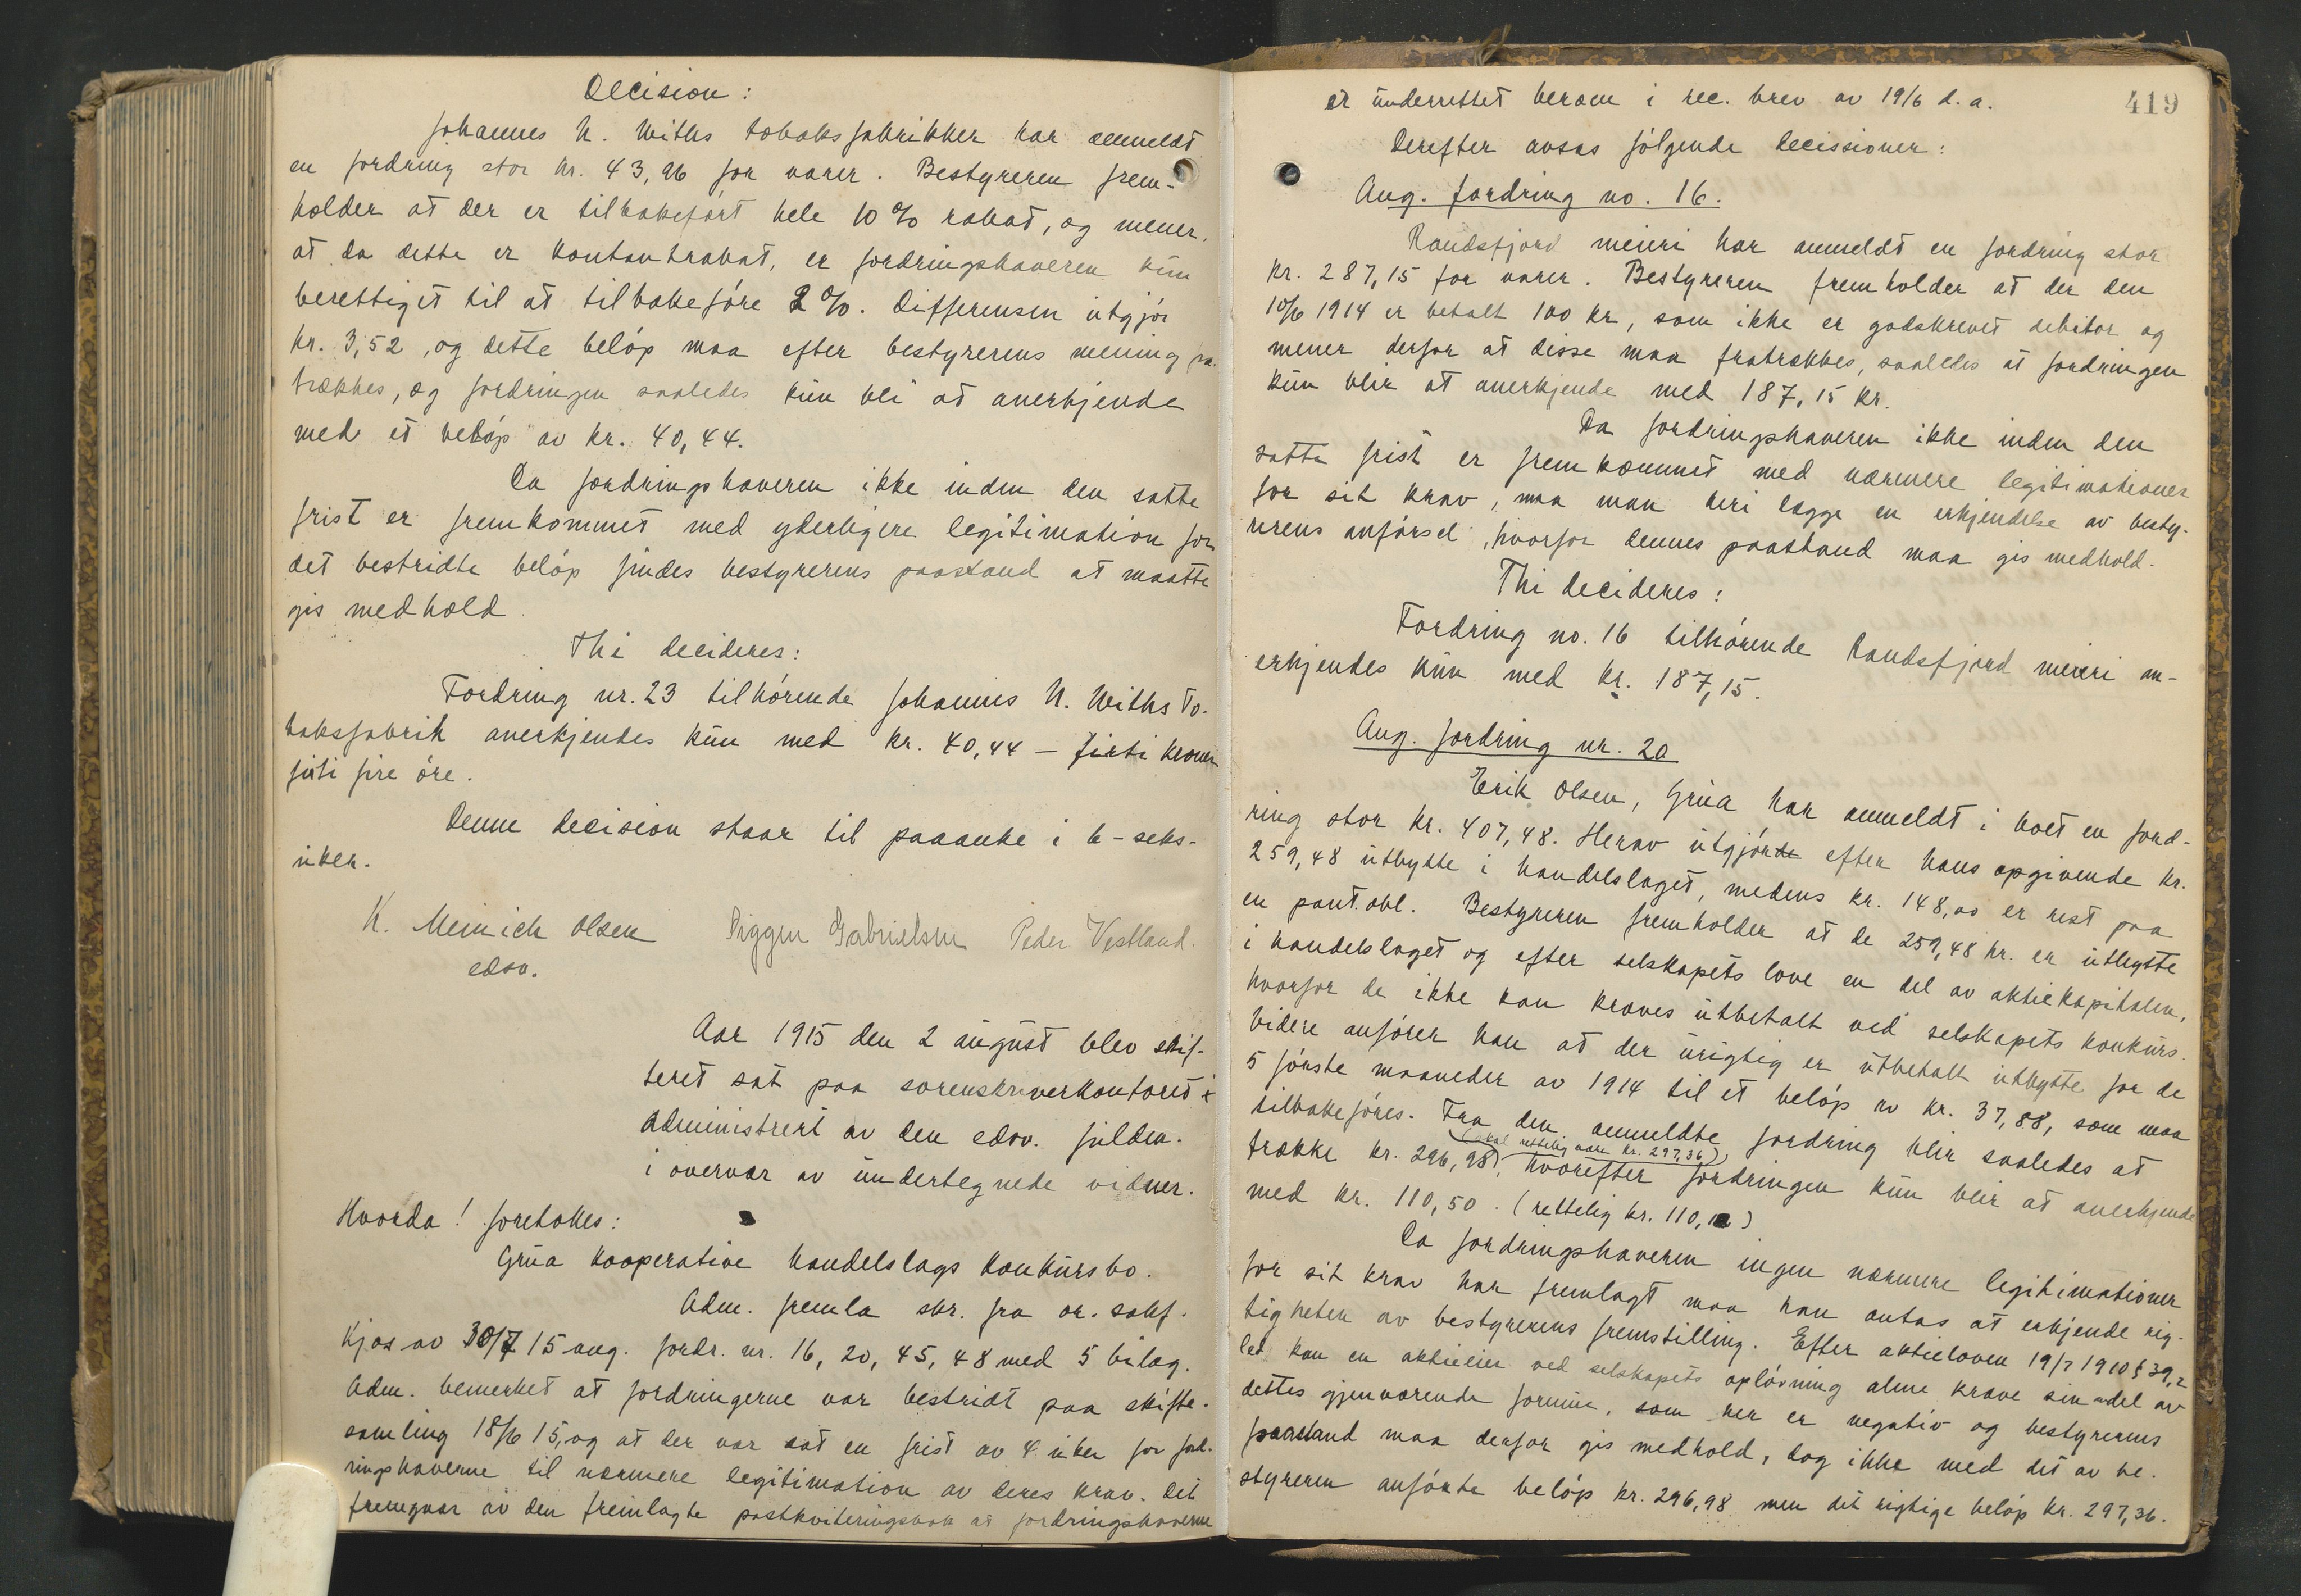 Decision:
Johannes N. Withs tobaksfabrikker har anmeldt
en fordring stor kr. 43,96 for varer. Bestyreren frem-
holder at der er tilbakeført hele 10 % rabat, og mener,
at da dette er kontantrabat, er fordringshaveren kun
berettiget til at tilbakeføre 2 %. Differensen utgjør
kr. 3,52, og dette beløp maa efter bestyrerens mening fra-
trækkes, og fordringen saaledes kun bli at anerkjende
med et beløp av kr. 40,44.
Da fordringshaveren ikke inden den satte
frist er fremkommet med yderligere legitimation for
det bestridte beløp findes bestyrerens paastand at maatte
gis medhold.
Thi decideres:
Fordring nr. 23 tilhørende Johannes N. Withs To-
baksfabrik anerkjendes kun med kr. 40,44 – firti kroner
firti fire øre.
Denne decision staar til paaanke i 6-seks-
uker.
K. Meinich Olsen Sigger Gabrielsen Peder Vestland.
edsv.
Aar 1915 den 2 august blev skif-
teret sat paa sorenskriverkontoret &
administrert av den edsv. fuldm.
i overvær av undertegnede vidner.
Hvorda! foretokes:
Grua kooperative handelslags konkursbo.
Adm. fremla skr. fra or. sakf.
Kjos av 30/7 15 ang. fordr. nr. 16, 20, 45, 48 med 5 bilag.
Adm. bemerket at fordringerne var bestridt paa skifte-
samling 18/6 15, og at der var sat en frist av 4 uker for ford-
ringshaverne til nærmere legitimation av deres krav. Det
fremgaar av den fremlagte postkviteringsbok at fordringshaverne
419
er underrettet herom i rec. brev av 19/6 d.a.
Derefter avsas følgende decissioner:
Ang. fordring no. 16.
Randsfjord meieri har anmeldt en fordring stor
kr. 287,15 for varer. Bestyreren fremholder at der den
10/6 1914 er betalt 100 kr, som ikke er godskrevet debitor og
mener derfor at disse maa fratrækkes, saaledes at fordringen
kun blir at anerkjende med 187,15 kr.
Da fordringshaveren ikke inden den
satte frist er fremkommet med nærmere legitimationer
for sit krav, maa man heri lægge en erkjendelse av besty-
rerens anførsel, hvorfor dennes paastand maa gis medhold.
Thi decideres:
Fordring no. 16 tilhørende Randsfjord meieri an-
erkjendes kun med kr. 187,15.
Ang. fordring nr. 20
Erik Olsen, Grua har anmeldt i boet en ford-
ring stor kr. 407,48. Herav utgjørde efter hans opgivende kr.
259,48 utbytte i handelslaget, medens kr. 148,00 er rest paa
en pant.obl. Bestyreren fremholder at de 259,48 kr. er utbytte
i handelslaget og efter selskapets love en del av aktiekapitalen,
hvorfor de ikke kan kræves utbetalt ved selskapets konkurs.
Videre anfører han at der urigtig er utbetalt utbytte for de
5 første maaneder av 1914 til et beløp av kr. 37,88, som maa
tilbakeføres. Fra den anmeldte fordring blir saaledes at
(skal rettelig være kr. 297,36),
trække kr. 296,98, hvorefter fordringen kun blir at anerkjende
med kr. 110,50. (rettelig kr. 110,12)
Da fordringshaveren ingen nærmere legitimationer
for sit krav har fremlagt maa han antas at erkjende rig-
tigheten av bestyrerens fremstilling. Efter aktieloven 19/7 1910 § 39, 2
led kan en aktieeier ved selskapets opløsning alene kræve sin andel av
dettes gjenværende formue, som her er negativ og bestyrerens
paastand maa derfor gis medhold, dog ikke med det av be-
styreren anførte beløp kr. 296,98 men det rigtige beløp kr. 297,36.